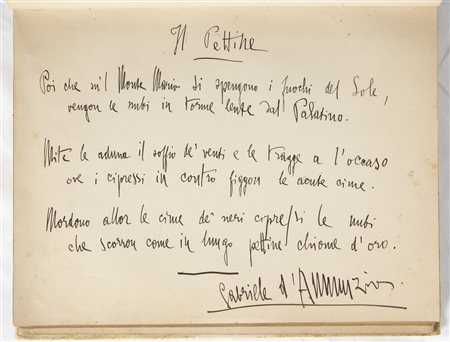 Il Pettine
Poi che su'l Monte Mario si spengono i fuochi del Sole,
vengon le nubi in torme lente dal Palatino.
Mite le aduna il soffio de' venti e le tragge a l'occaso
ove i cipressi in contro figgon le acute cime.
Mordono allor le cime de' neri cipressi le nubi
che scorron come in lungo pettine chiome d'oro.
Gabriele d'Annunzio.